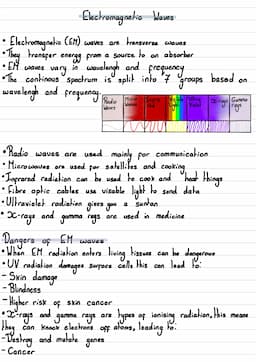 Electromagnetic Waves
• Electromagnetic (EM) waves are transverse waves
• They transfer energy from a source to an absorber
• EM waves vary in wavelengh and frequency
• The continous spectrum is split into 7 groups based on
wavelengh and frequency.
Radio waves
Gamma rays
• Radio waves are used mainly for communication
• Microwaves are used for satellites and cooking
• Infrared radiation can be used to cook and heat things
• Fibre optic cables use visable light to send data
• Ultraviolet radiation gives you a suntan
• X-rays and gamma rays are used in medicine
Dangers of EM waves
• When EM radiation enters living tissues can be dangerous
• UV radiation damages surface cells this can lead to:
- Skin damage
- Blindness
- Higher risk of skin cancer
• X-rays and gamma rays are types of ionising radiation, this means
they can knock electrons off atoms, leading to:
- Destroy and mutate genes
- Cancer